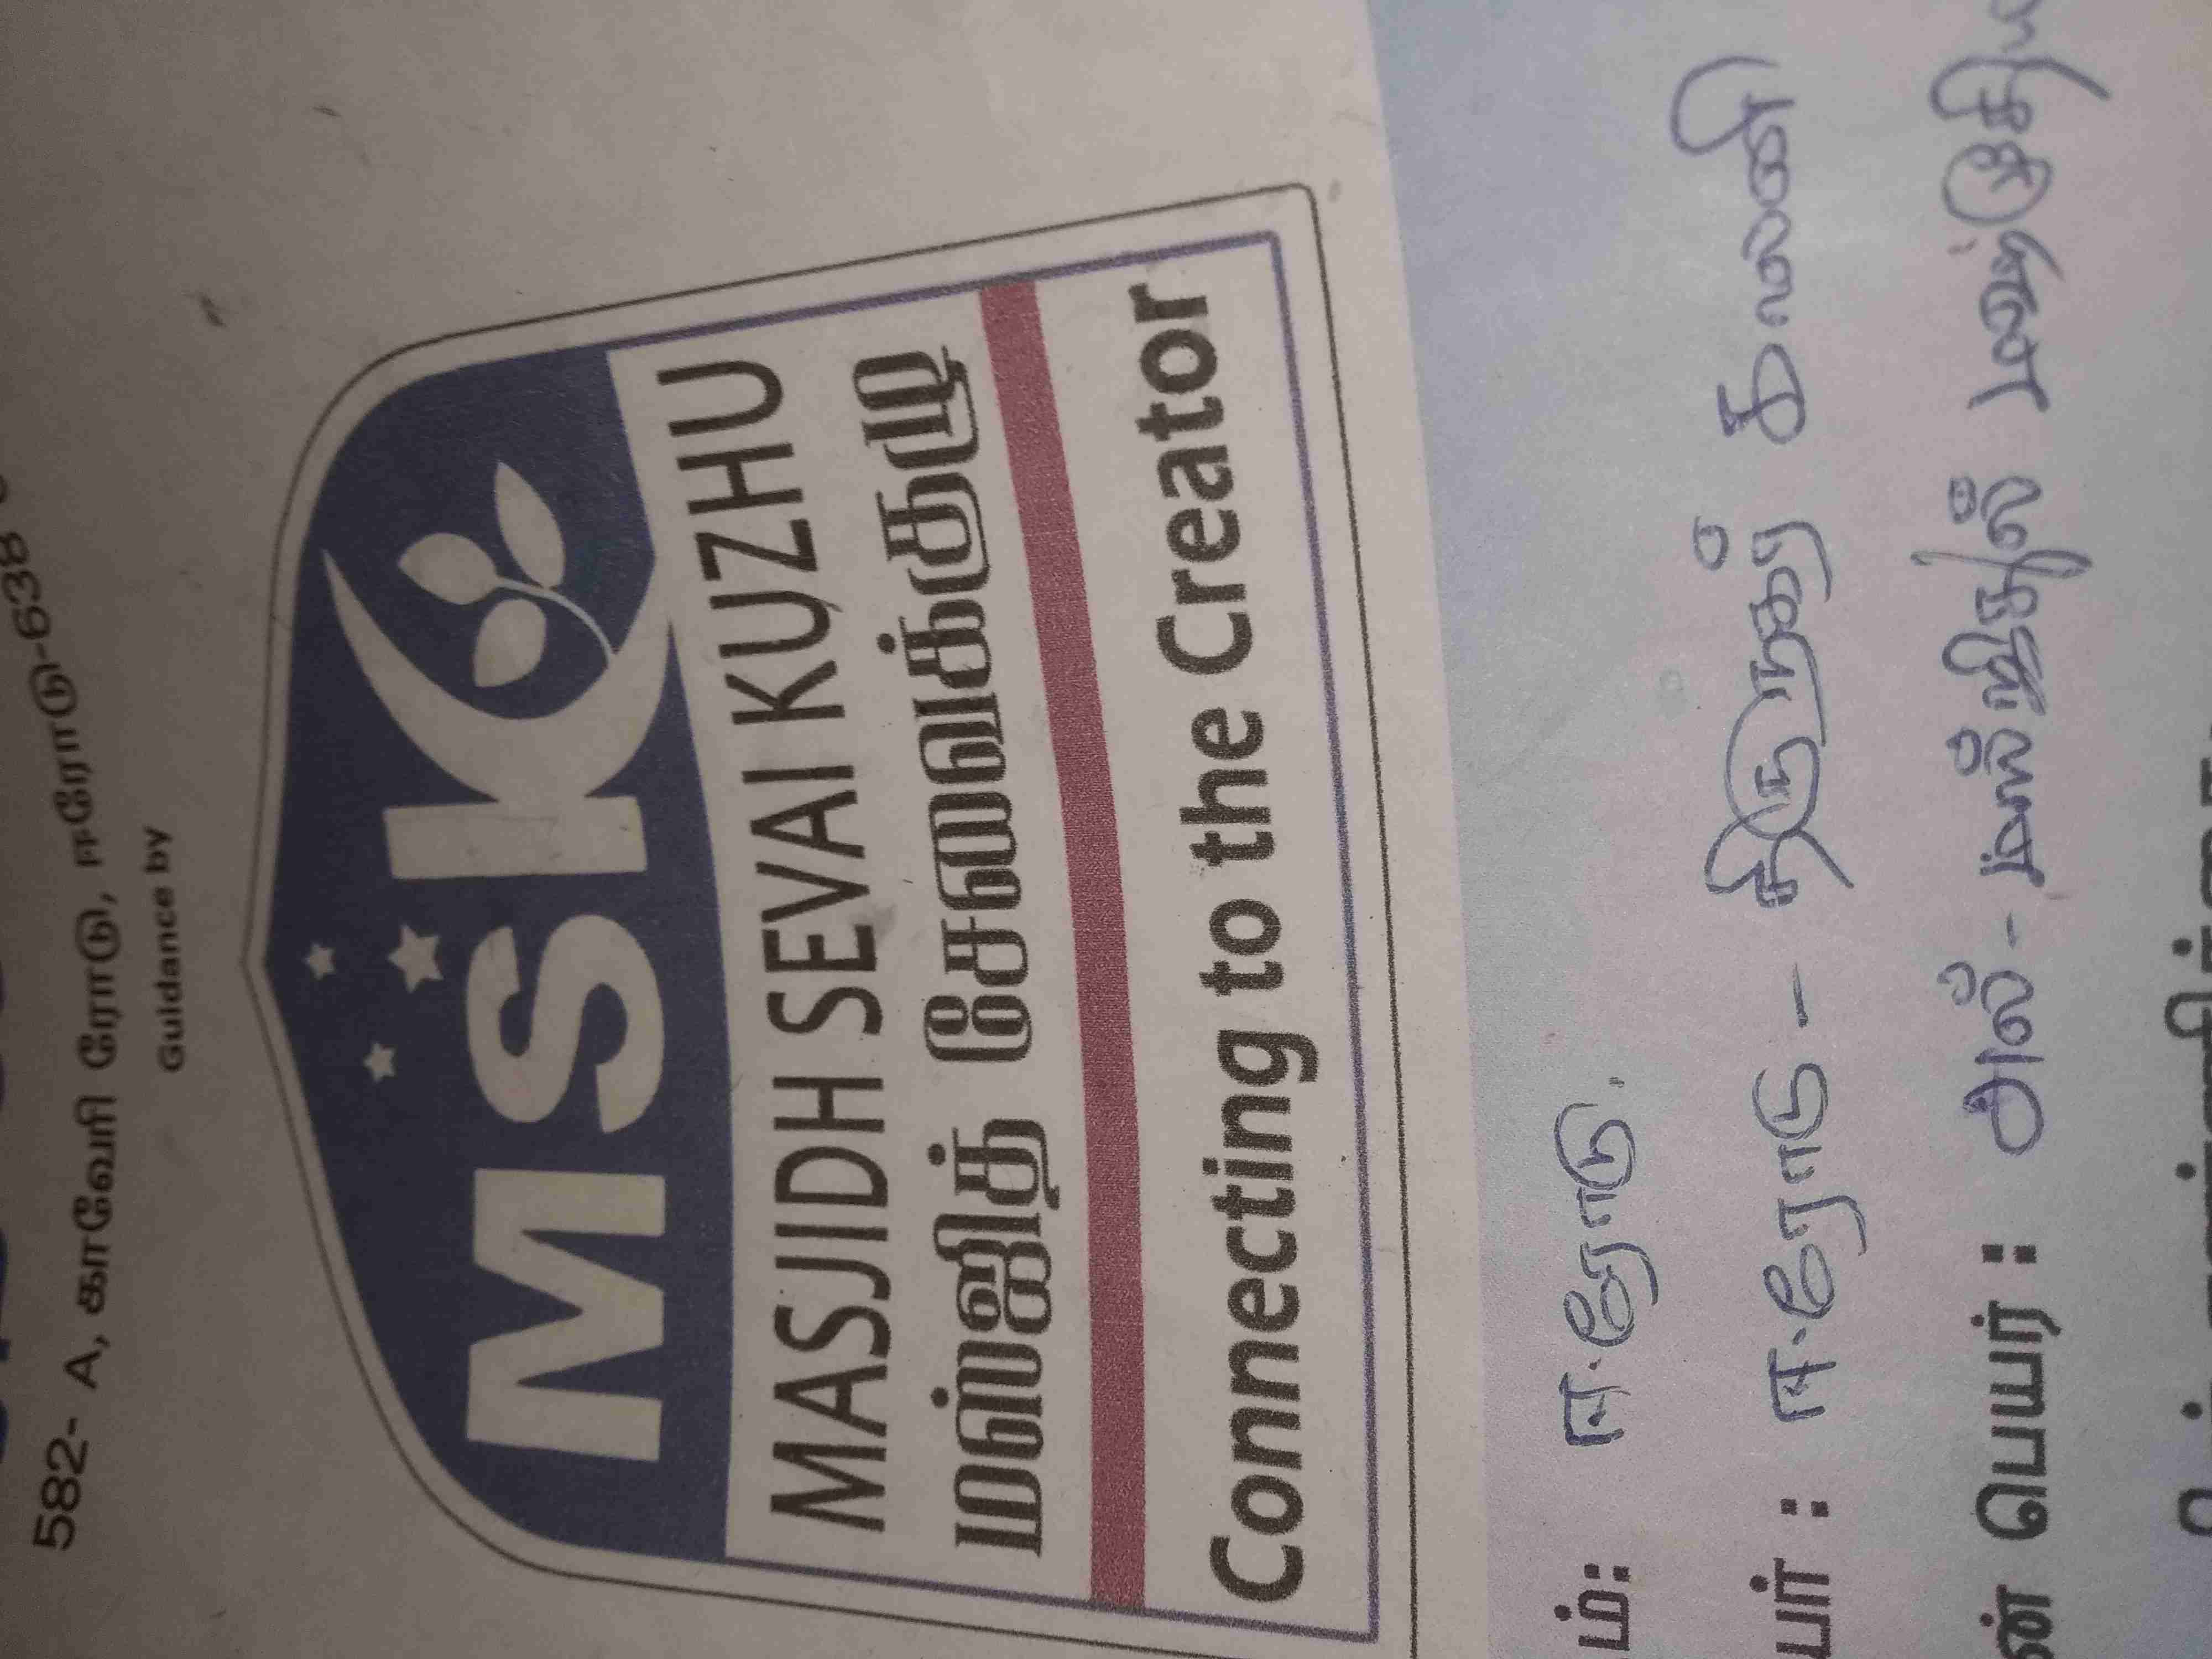 582- A, காவேரி ரோடு, ஈரோடு-638
Guidance by
MSK
MASJIDH SEVAI KUZHU
மஸ்ஜித் சேவைக்குழு
Connecting to the Creator
ம்: ஈ.ரோடு.
யர் : ஈ.ரோடு - திருநகர் காலனி
ன் பெயர் : அல் - மஸ்ஜிதுல்